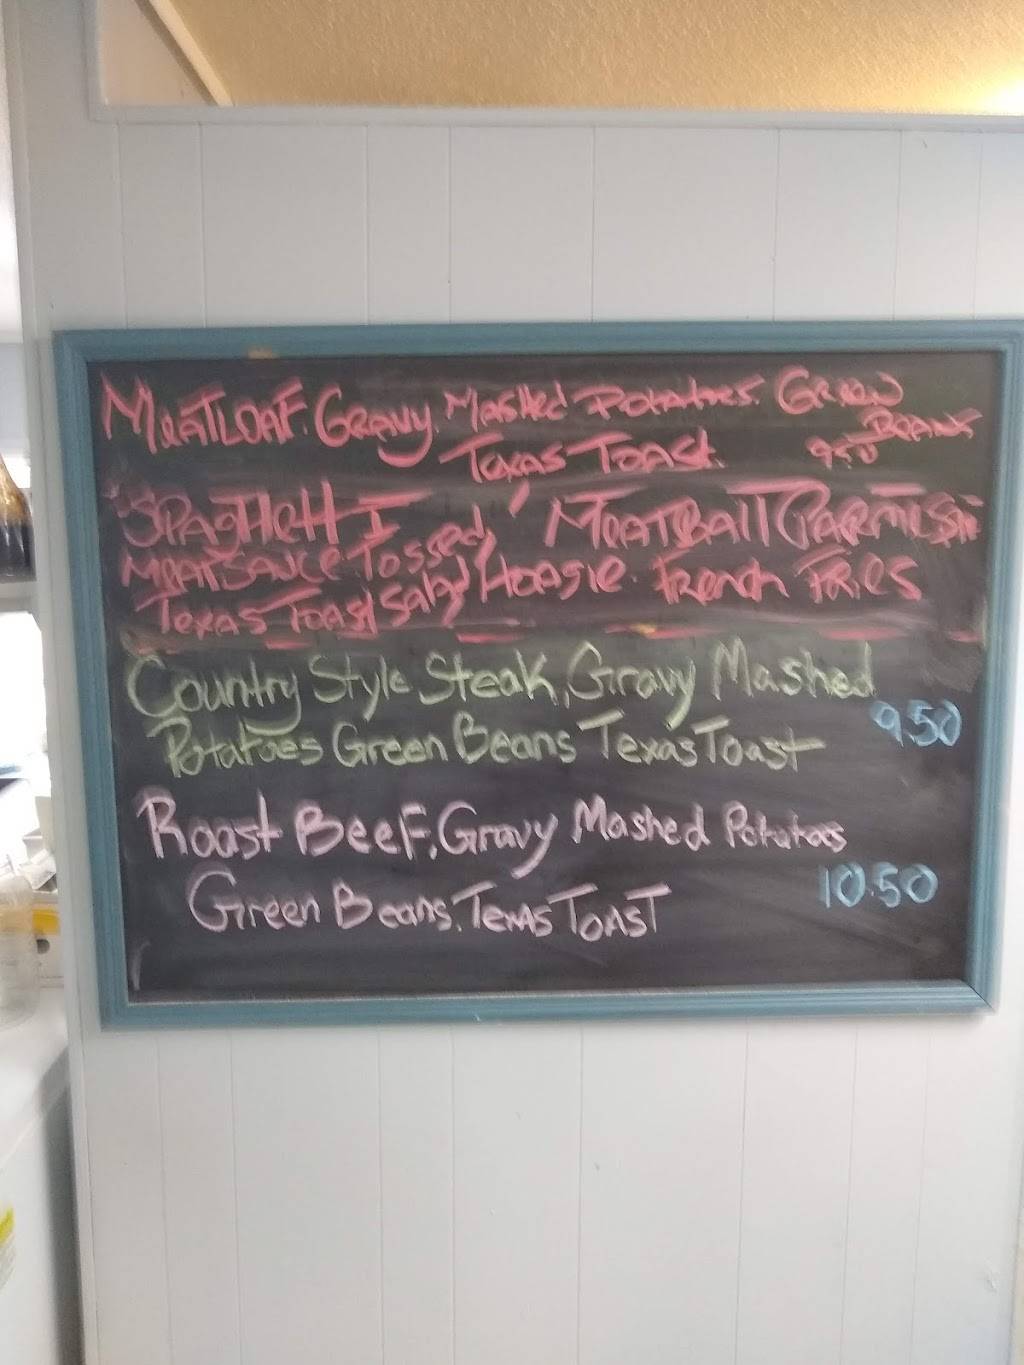 Meatloaf. Gravy. Mashed Potatoes. Green
Beans
Texas Toast. 9.50
Spaghetti
Meat Sauce Tossed
Texas Toast Salad
Meatball Parmesan
Hoagie. French Fries
Country Style Steak, Gravy Mashed
Potatoes Green Beans Texas Toast
9.50
Roast Beef, Gravy Mashed Potatoes
10.50
Green Beans. Texas Toast